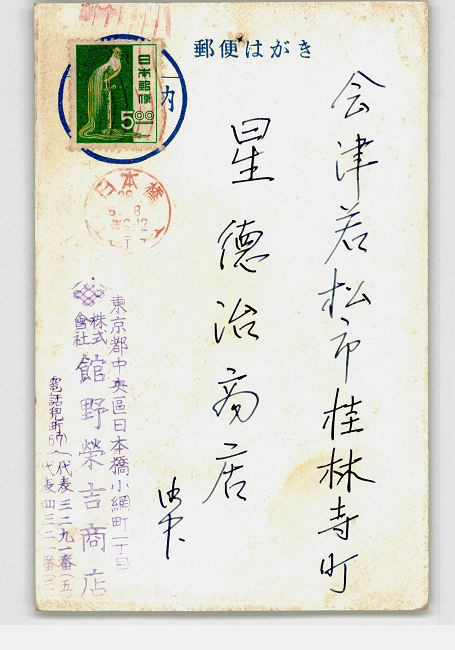 郵便はがき
日本郵便
5.00
内
日本橋
会津若松市桂林寺町
星德治商店
東京都中央區日本橋小網町一丁目
株式會社
館野榮吉商店
代表三二九一番(五)
代表四三二一番